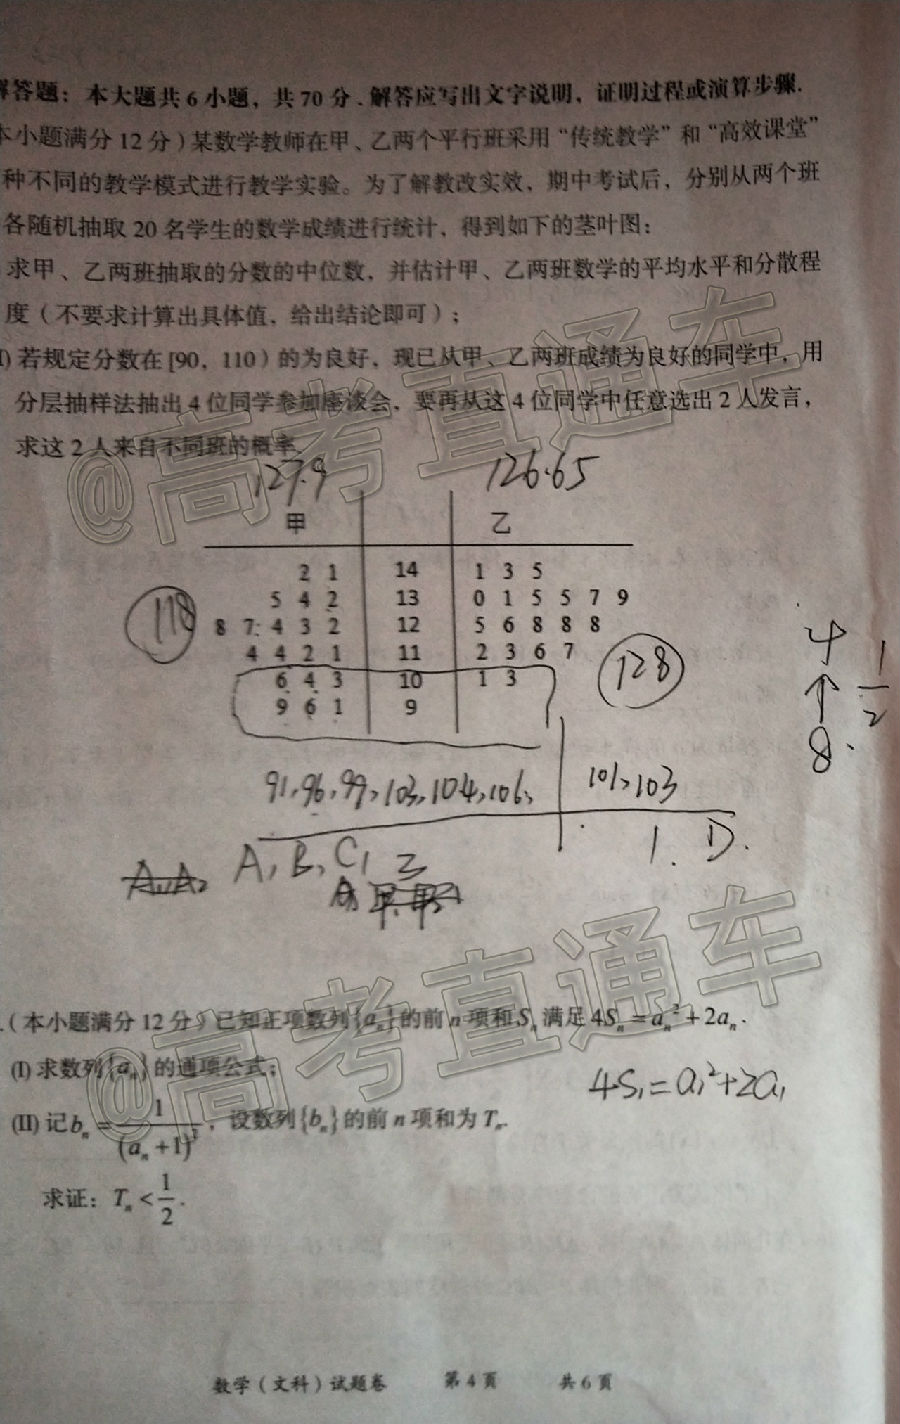 解答题：本大题共6小题，共70分.解答应写出文字说明，证明过程或演算步骤.
本小题满分12分）某数学教师在甲、乙两个平行班采用“传统教学”和“高效课堂”
种不同的教学模式进行教学实验。为了解教改实效，期中考试后，分别从两个班
各随机抽取20名学生的数学成绩进行统计，得到如下的茎叶图：
求甲、乙两班抽取的分数的中位数，并估计甲、乙两班数学的平均水平和分散程
度（不要求计算出具体值，给出结论即可）；
I)若规定分数在[90，110）的为良好，现已从甲、乙两班成绩为良好的同学中，用
分层抽样法抽出4位同学参加座谈会，要再从这4位同学中任意选出2人发言，
求这2人来自不同班的概率.
127.9 126.65
甲 乙
2 1 14 1 3 5
5 4 2 13 0 1 5 5 7 9
118 8 7 4 3 2 12 5 6 8 8 8
4 4 2 1 11 2 3 6 7 128
6 4 3 10 1 3
9 6 1 9
4 ↑ 8. 1/2
91,96,99,103,104,106, 101,103
A, B, C, 1. D.
@高考直通车
@高考直通车
.（本小题满分12分）已知正项数列{aₙ}的前n项和Sₙ满足4Sₙ=aₙ²+2aₙ.
(I)求数列{aₙ}的通项公式；
4S₁=a₁²+2a₁
(II)记bₙ=1/(aₙ+1)²，设数列{bₙ}的前n项和为Tₙ.
求证：Tₙ<1/2.
数学（文科）试题卷 第4页 共6页